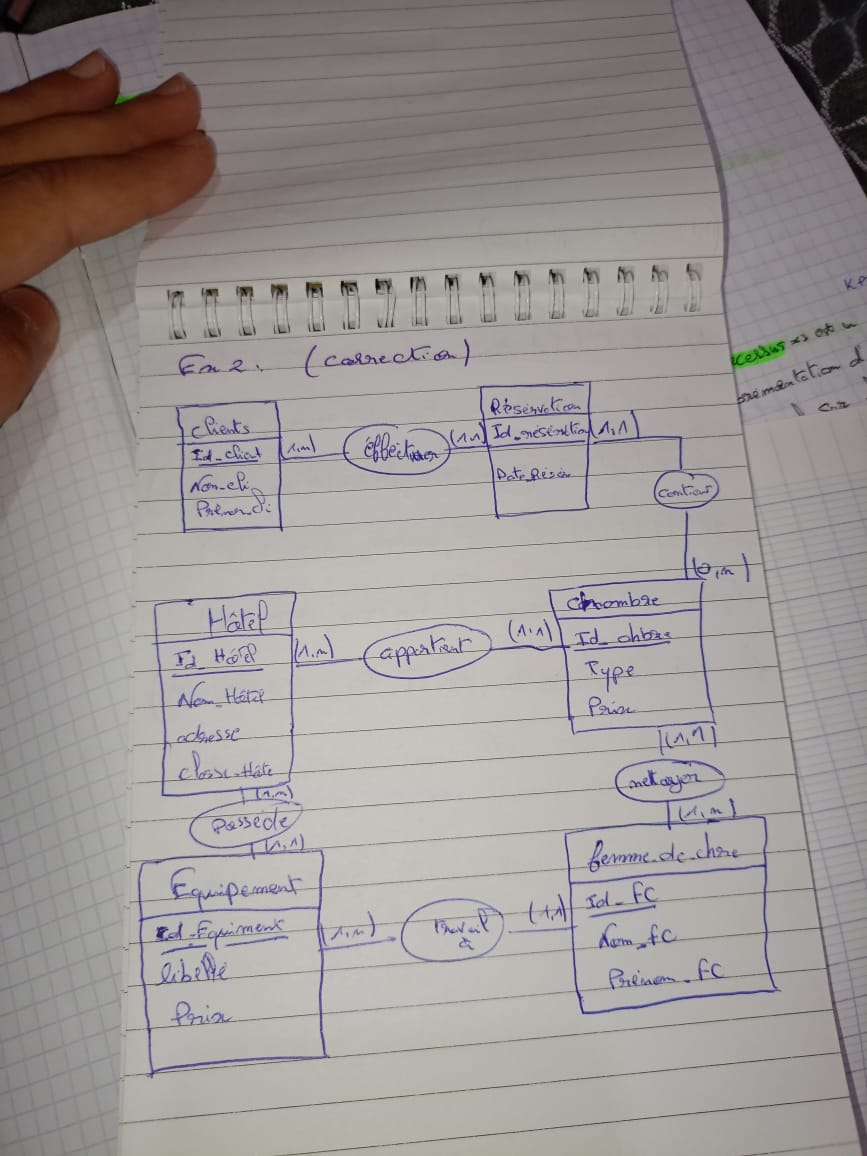 Ex 2. (correction)
Clients
Id_client
Nom_cli
Prénom_cli
(1,n)
Effectuer
(1,1)
Réservation
Id_réservation
Date_Réser
(1,1)
contient
(0,n)
Hôtel
Id_Hôtel
Nom_Hôtel
adresse
classe_Hôte
(1,n)
appartient
(1,1)
Chombre
Id_chbre
Type
Prix
(1,1)
nettoyer
(1,n)
(1,n)
Possède
(1,1)
Equipement
Id_Equiment
libellé
Prix
(1,n)
Travail
à
(1,1)
femme_de_chbre
Id_FC
Nom_FC
Prénom_FC